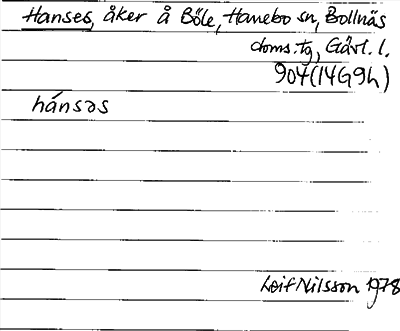 Hanses, åker å Böle, Hanebo sn, Bollnäs
doms.tg, Gävl. l.
904(14G9h)
hánsəs
Leif Nilsson 1978